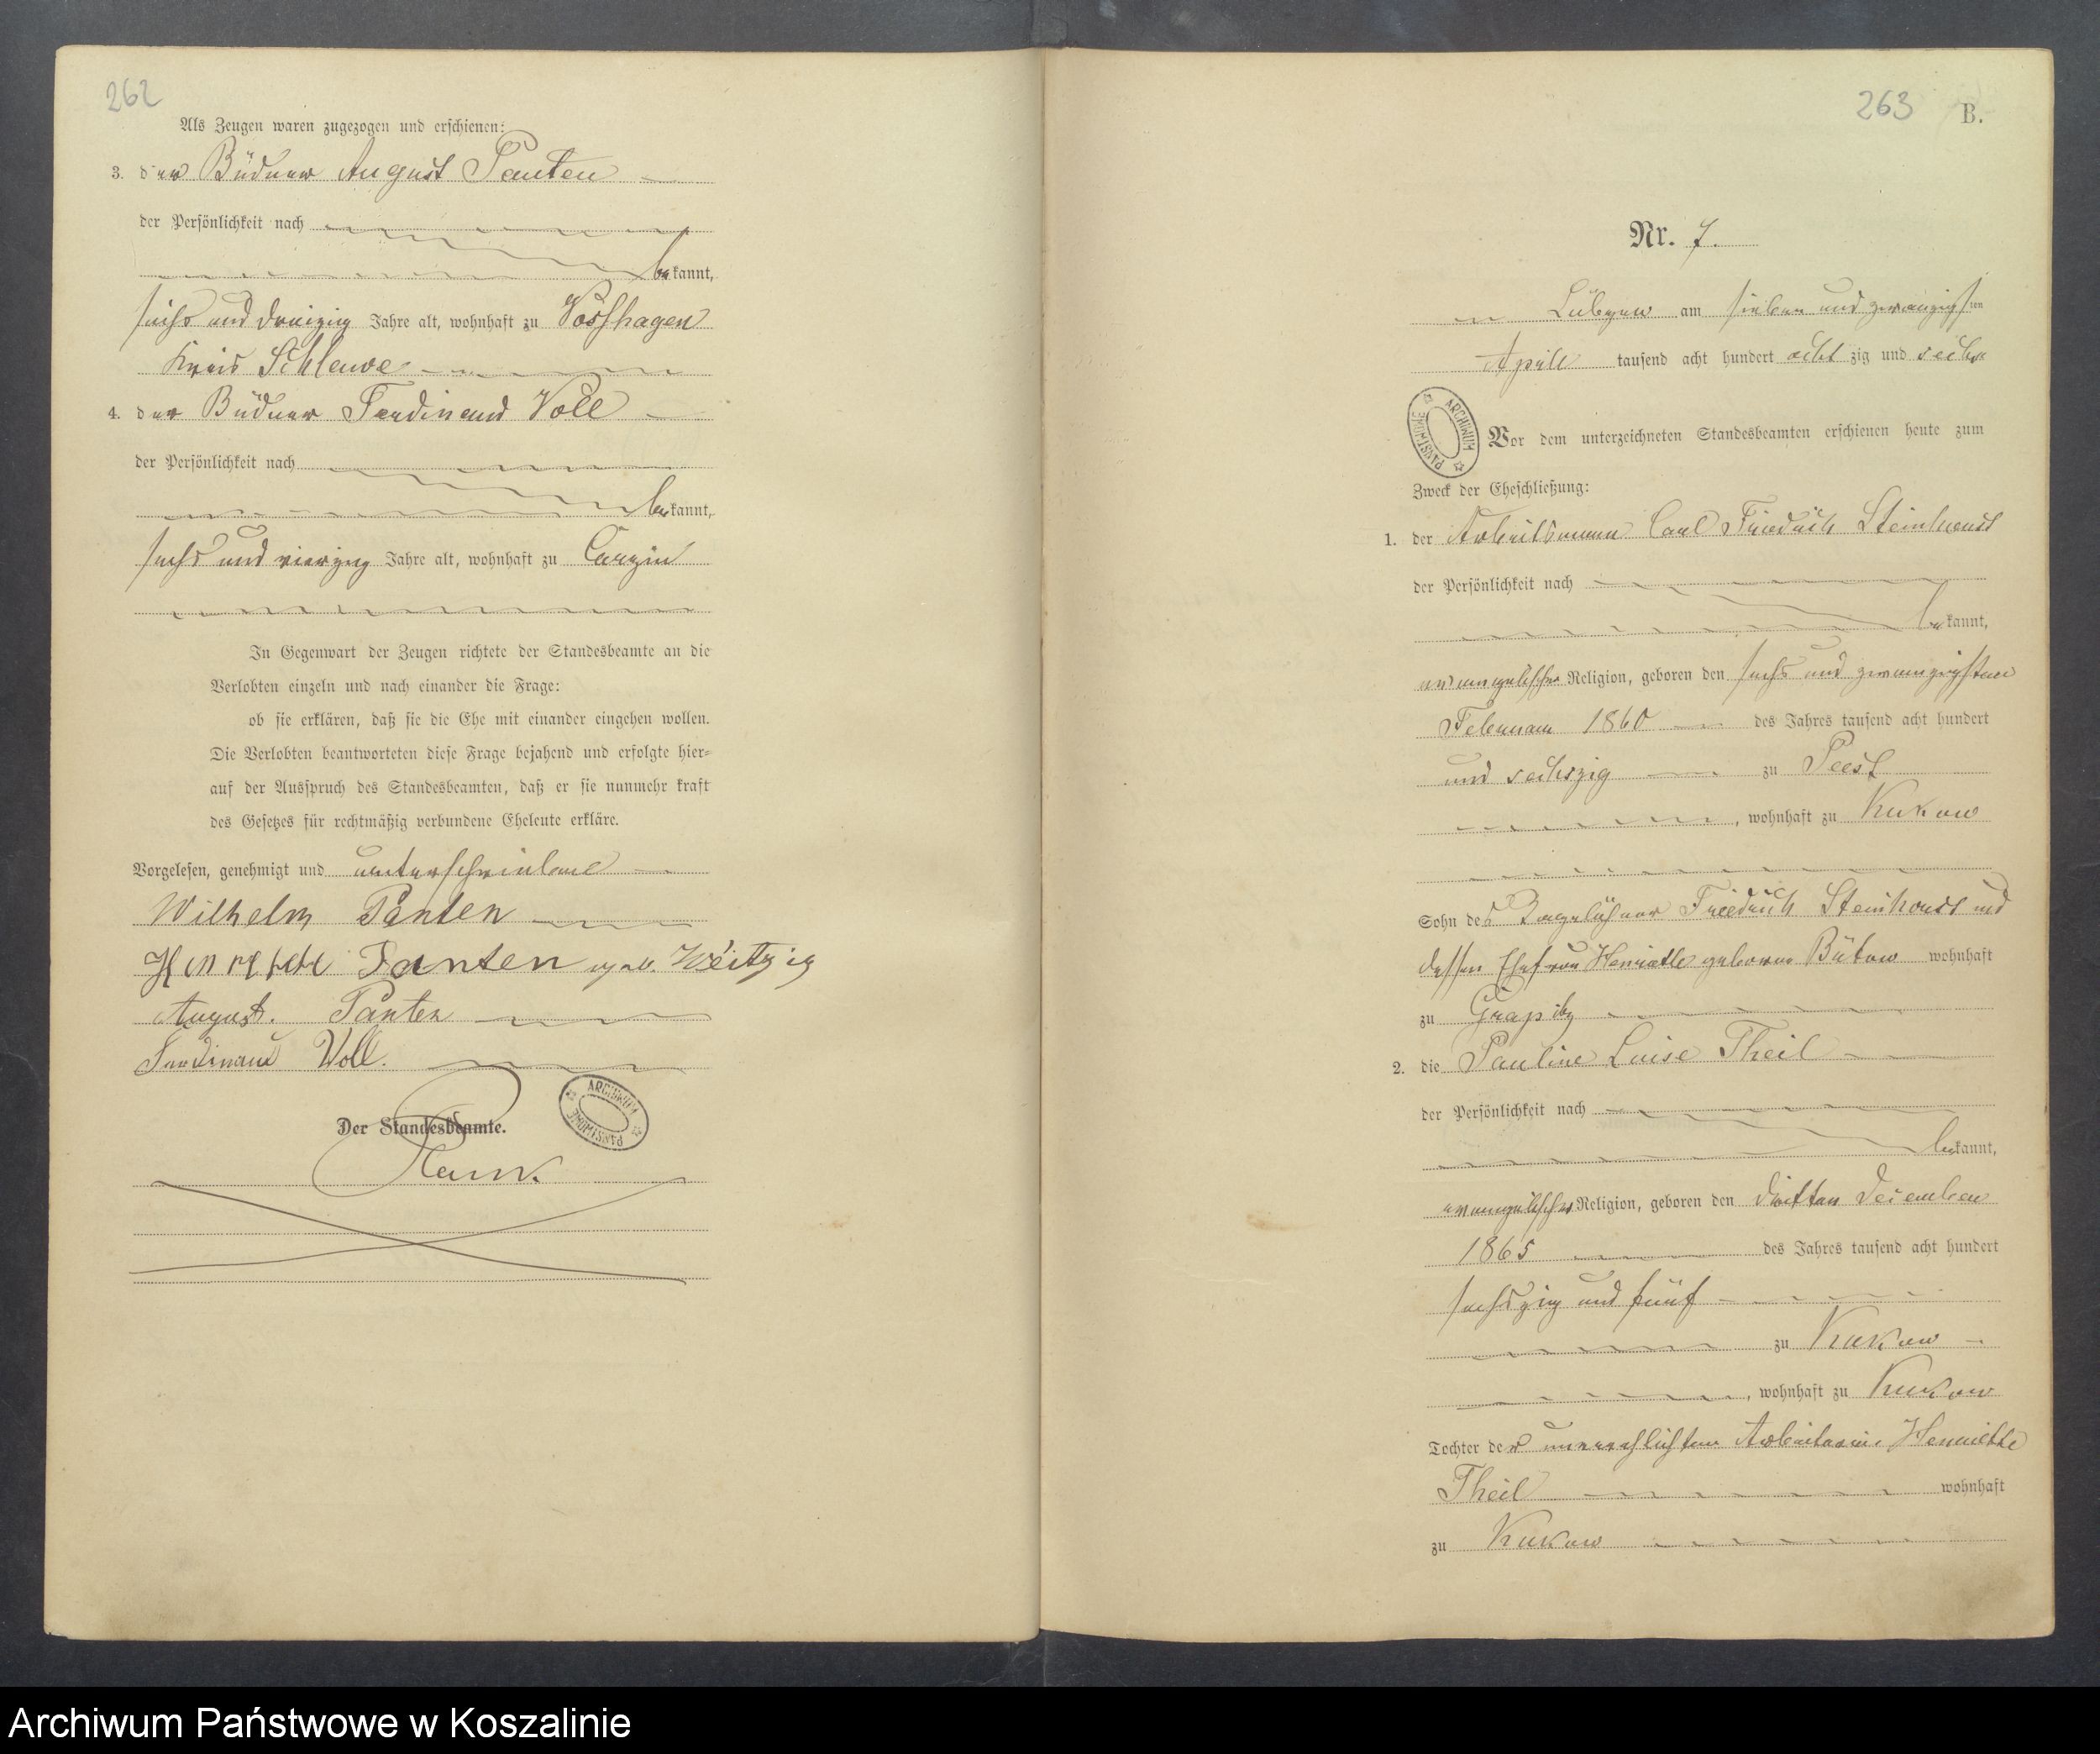 262
Als Zeugen waren zugezogen und erschienen:
3. der Büdner August Panten
der Persönlichkeit nach
bekannt,
sechs und dreizig Jahre alt, wohnhaft zu Vosshagen
Kreis Schlawe
4. der Büdner Ferdinand Voll
der Persönlichkeit nach
bekannt,
sechs und vierzig Jahre alt, wohnhaft zu Carzin
In Gegenwart der Zeugen richtete der Standesbeamte an die
Verlobten einzeln und nach einander die Frage:
ob sie erklären, daß sie die Ehe mit einander eingehen wollen.
Die Verlobten beantworteten diese Frage bejahend und erfolgte hier-
auf der Ausspruch des Standesbeamten, daß er sie nunmehr kraft
des Gesetzes für rechtmäßig verbundene Eheleute erkläre.
Vorgelesen, genehmigt und unterschrieben
Wilhelm Panten
Henriette Panten geb. Weitzig
August. Panten
Ferdinand Voll.
Der Standesbeamte.
ARCHIWUM PAŃSTWOWE
263 B.
Nr. 7.
Lübzow am sieben und zwanzigsten
April tausend acht hundert achtzig und sechs
ARCHIWUM PAŃSTWOWE
Vor dem unterzeichneten Standesbeamten erschienen heute zum
Zweck der Eheschließung:
1. der Arbeitsmann Carl Friedrich Steinhorst
der Persönlichkeit nach
bekannt,
evangelischer Religion, geboren den sechs und zwanzigsten
Februar 1860 des Jahres tausend acht hundert
und sechszig zu Peest
, wohnhaft zu Kukow
Sohn des Tagelöhner Friedrich Steinhorst und
dessen Ehefrau Henriette geborene Bütow wohnhaft
zu
2. die Pauline Luise Theil
der Persönlichkeit nach
bekannt,
evangelischer Religion, geboren den dritten December
1865 des Jahres tausend acht hundert
sechszig und fünf
zu Kukow
, wohnhaft zu Kukow
Tochter der unverehlichten Arbeiterin Henriette
Theil wohnhaft
zu Kukow
Archiwum Państwowe w Koszalinie